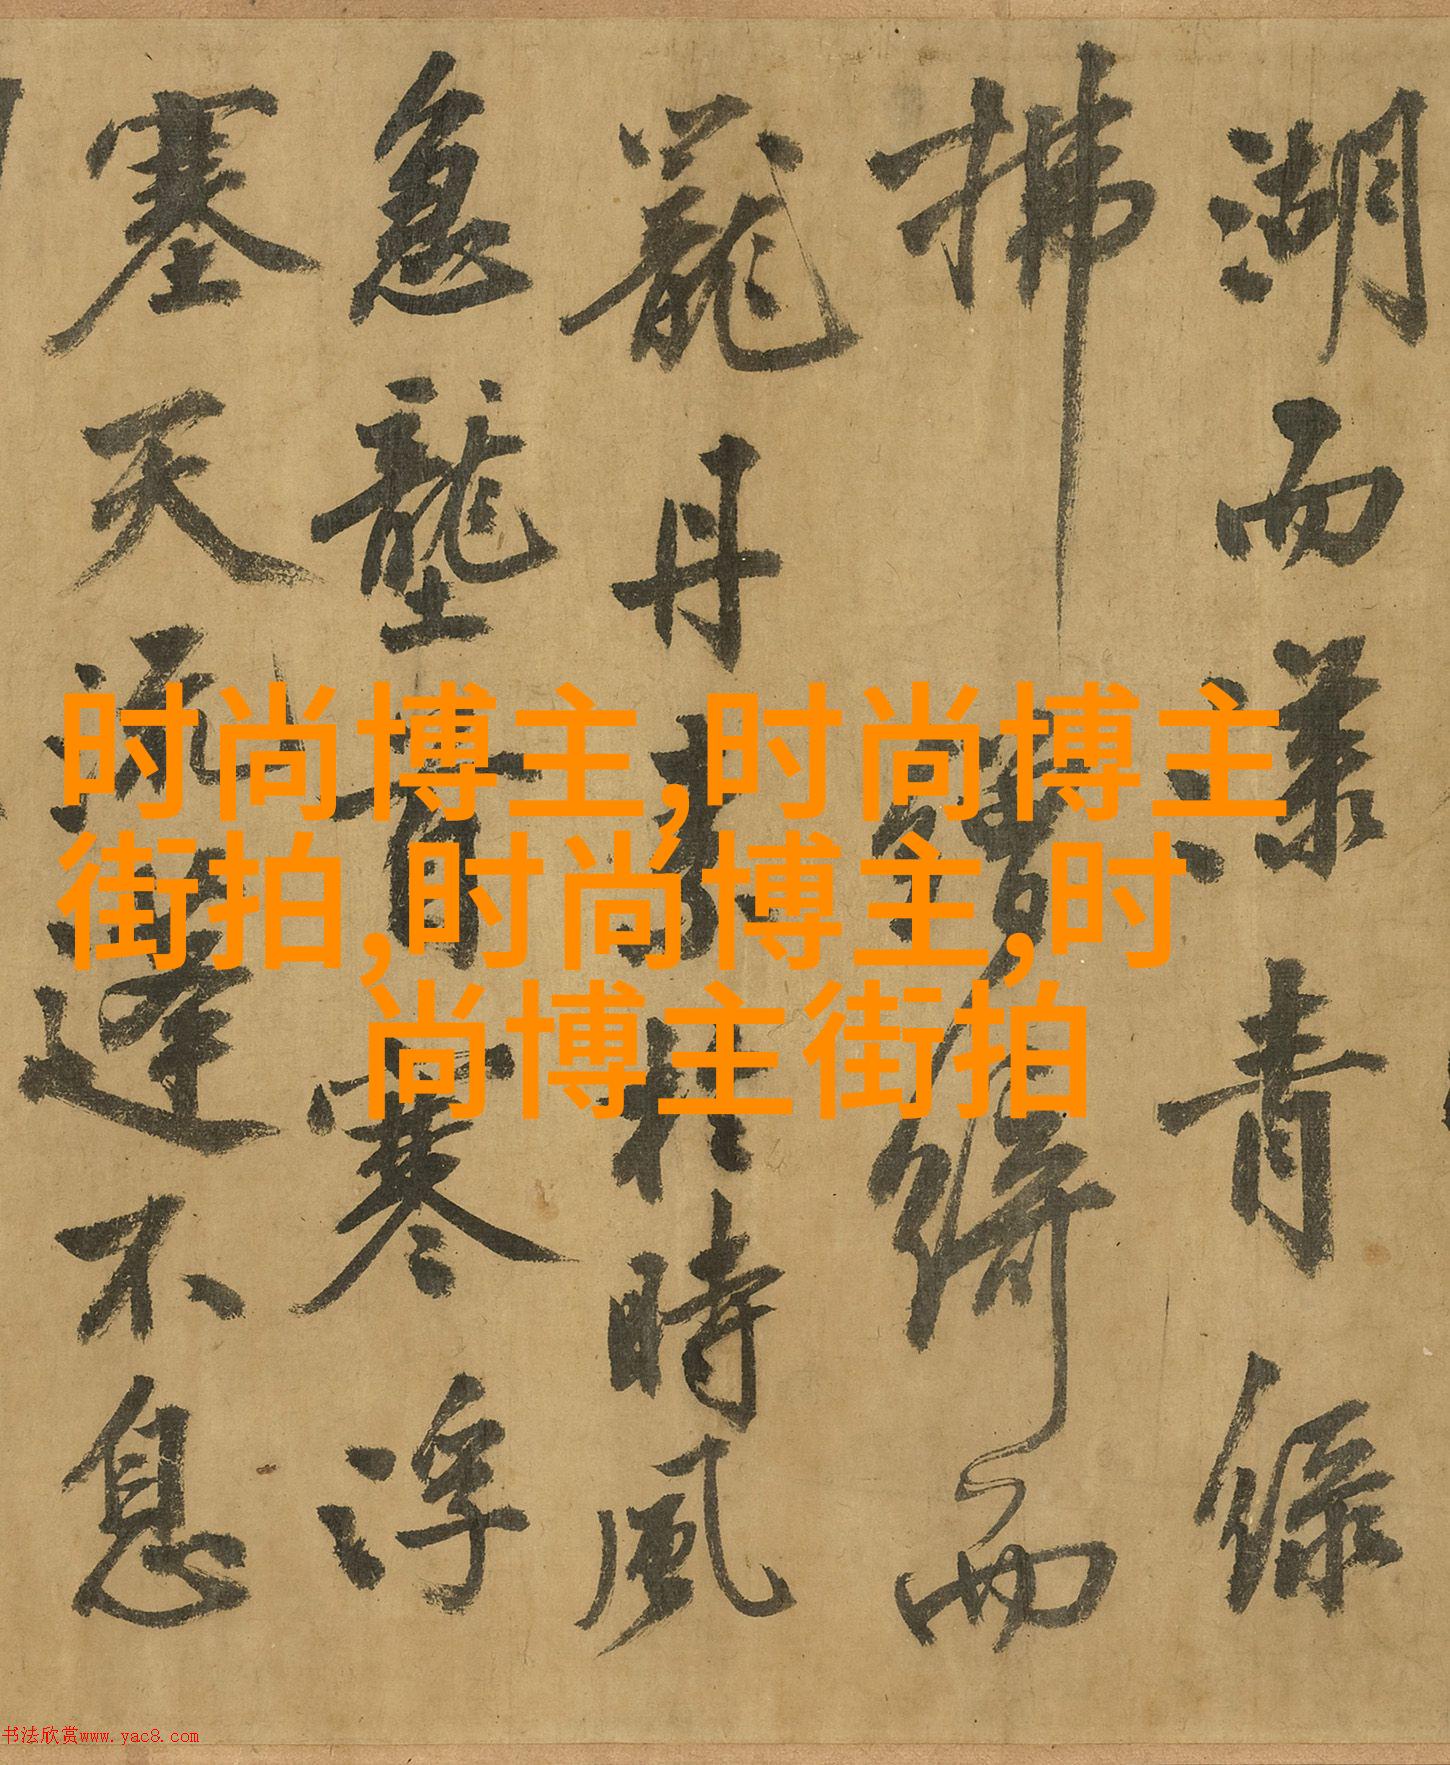 湖而漾青綠
拂繒綺而
丹時風
急壟首寒浮
塞天流逢不息
时尚博主,时尚博主
街拍,时尚博主,时
尚博主街拍
书法欣赏www.yac8.com